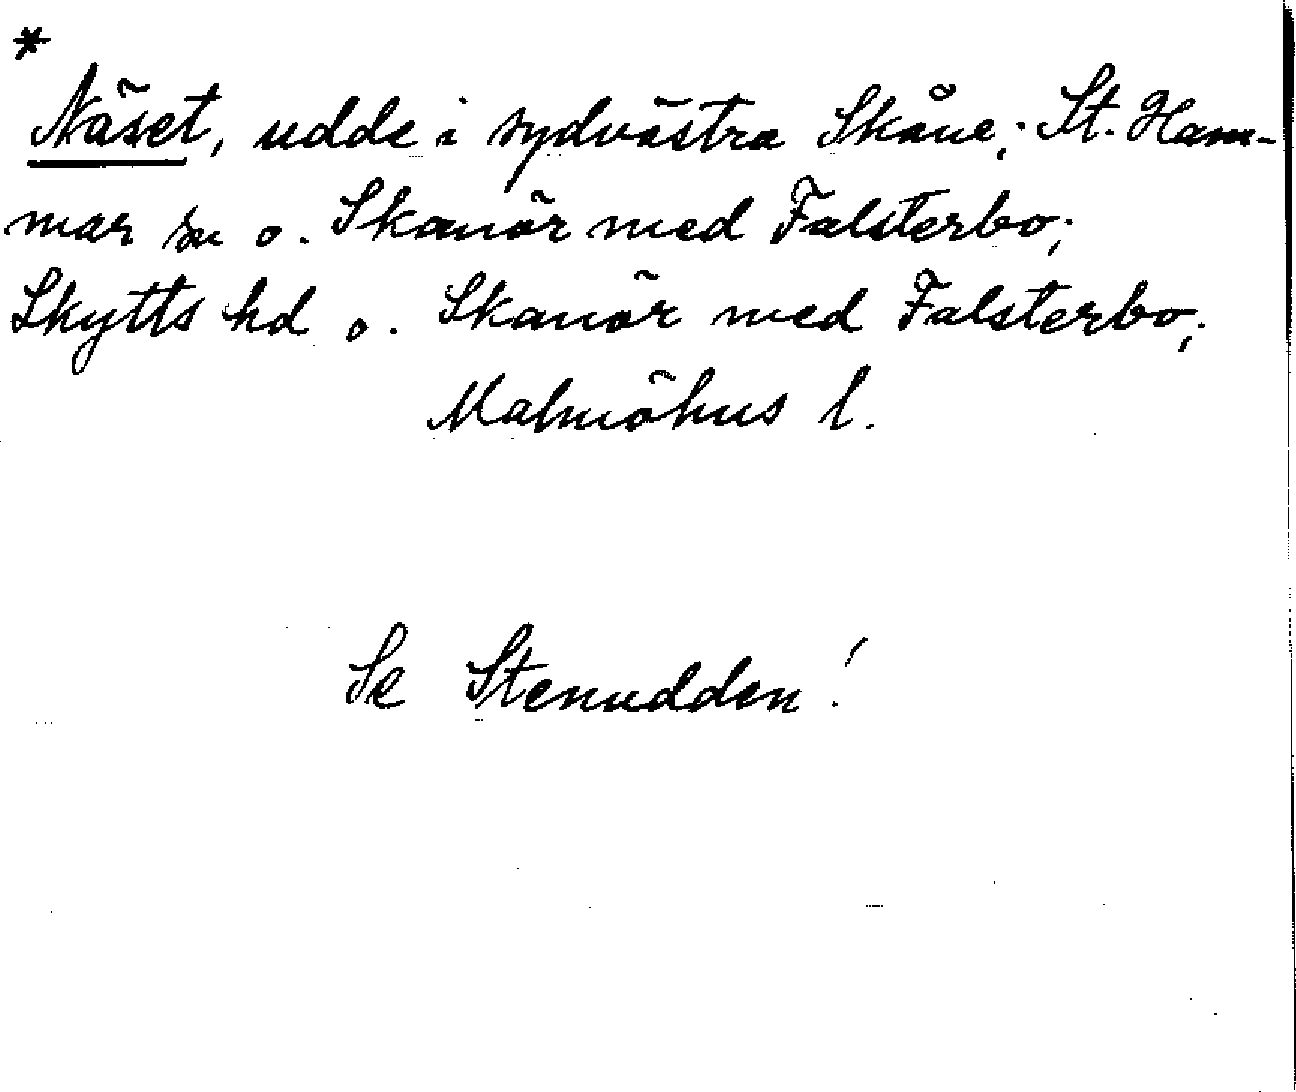 *
Näset, udde i sydvästra Skåne; St. Ham-
mar sn o. Skanör med Falsterbo;
Skytts hd o. Skanör med Falsterbo;
Malmöhus l.
Se Stenudden!